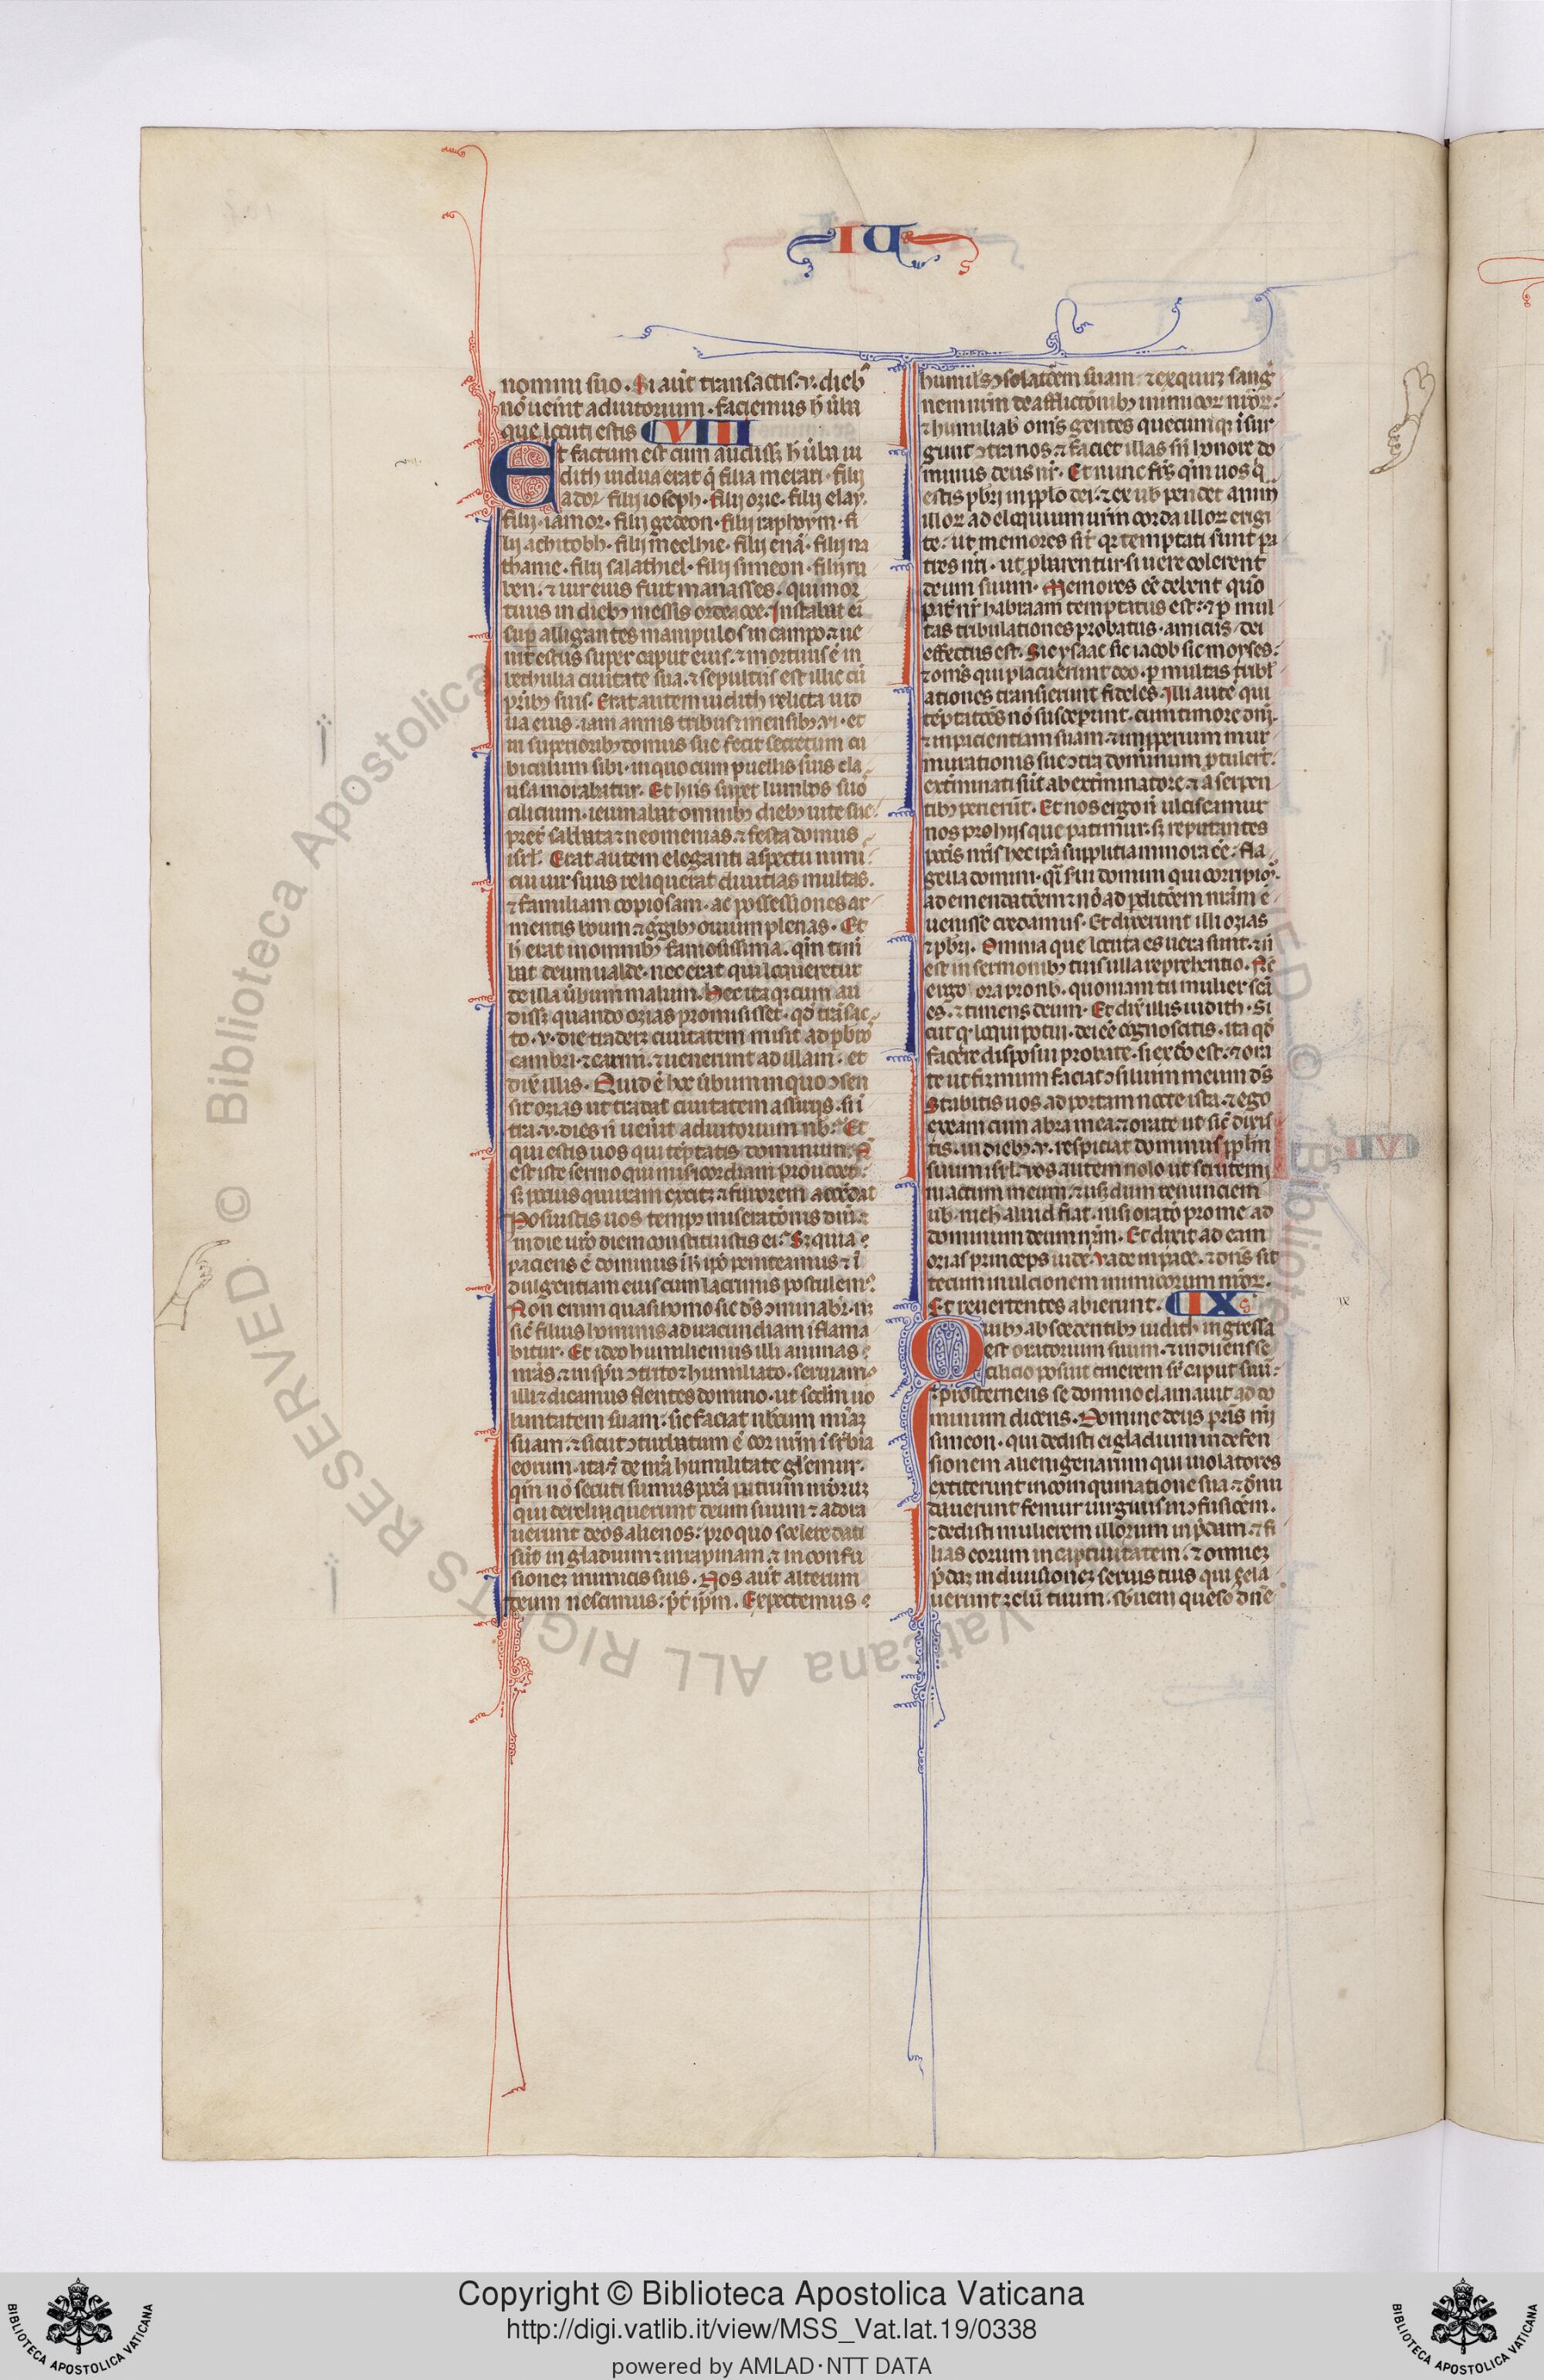 IU
nomini suo. Si aut̄ transactis .v. dieb᷒
nō uen̄int adiutorium. faciemus h̄ ūba
que locuti estis VIII
Et factum est cum audiss; h̄ ūba iu
dith uidua erat q̄ filia merari. filij
ador. filij ioseph. filij ozie. filij elay.
filij. iamor. filij gedeon. filij raphoym. fi
lij achitobh. filij melchie. filij enā. filij na
thanie. filij salathiel. filij simeon. filij ru
ben. ⁊ uir eius fuit manasses. qui mor
tuus in dieb᷒ messis ordeacee. Instabat ei
sup̄ alligantes manipulos in campo. ⁊ ue
nit estus super caput eius. ⁊ mortuus ē in
bethulia ciuitate sua. ⁊ sepultus est illic cū
p̄rib᷒ suis. Erat autem iudith relicta uid
ua eius. iam annis tribus ⁊ mensib᷒ .vi. et
in superiorib᷒ domus sue fecit secretum cu
biculum sibi. in quo cum puellis suis cla
usa morabatur. Et hn̄s super lumbos suos
cilicium. ieiunabat omnib᷒ dieb᷒ uite sue.
preter sabbata ⁊ neomenias. ⁊ festa domus
isrl. Erat autem eleganti aspectu nimis.
cui uir suus reliquerat diuitias multas.
⁊ familiam copiosam. ac possessiones ar
mentis boum ⁊ ḡgib᷒ ouium plenas. Et
h̄ erat in omnib᷒ famosissima. qm̄ time
bat deum ualde. nec erat qui loqueretur
de illa ūbum malum. Hec itaq; cum au
diss; quando ozias promisisset. qd̄ trāsac
to .v. die trader; ciuitatem misit ad p̄bros
cambri. ⁊ carmi. ⁊ uenerunt ad illam. et
dix̄ illis. Quid ē hoc ūbum in quo ↄsen
sit ozias ut tradat ciuitatem assirijs. si i
tra .v. dies n̄ uen̄it adiutorium nb̄. Et
qui estis uos qui tēptatis dominum. Nō
est iste sermo qui misericordiam prouocet.
s; pocius qui iram excit; ⁊ furorem accendat
Posuistis uos temp᷒ miserationis dn̄i.
in die ur̄o diem constituistis ei. S; quia
paciens ē dominus i h̄ ipō peniteamus ⁊ i
dulgentiam eius cum lacrimis postulem᷒.
Non enim quasi homo sic ds̄ ↄminabr̄. n;
sic̄ filius hominis ad iracundiam iflama
bitur. Et ideo humiliemus illi animas
nrās. ⁊ in spū ↄtrito ⁊ humiliato. seruiam᷒
illi ⁊ dicamus flentes domino. ut scd̄m uo
luntatem suam. sic faciat nb̄cum mīam
suam. ⁊ sicut ↄturbatum ē cor nrm̄ i sup̄bia
eorum. ita ⁊ de nrā humilitate glēmur.
qm̄ nō secuti sumus pctā patrum nrōrum
qui dereliquerunt deum suum ⁊ adora
uerunt deos alienos. pro quo scelere dati
sūt in gladium ⁊ in rapinam. ⁊ in confu
sione; inimicis suis. Nos aut̄ alterum
deum nescimus. p̄t ip̄m. Expectemus
humil᷒ ↄsolatōem suam. ⁊ exquir; sang
nem nrm̄ de afflictōnib᷒ inimicor; nrōr;.
⁊ humiliab̄ om̄s gentes quecumq; isur
gunt ↄtra nos. ⁊ faciet illas sn̄ honore do
minus deus nr̄. Et nunc frs̄ qm̄ uos q̄
estis p̄bri in pplo dei. ⁊ ex ub̄ pendet anim
illor; ad eloquium urm̄ corda illor; erigi
te. ut memores sīt q; temptati sunt pa
tres nr̄i. ut p̄barentur si uere colerent
deum suum. Memores eē debent quō
pat̄ nr̄ habraam temptatus est. ⁊ p mul
tas tribulationes probatus. amicus dei
effectus est. Sic ysaac sic iacob sic moyses.
⁊ om̄s qui placuerunt deo. p multas tribl
ationes transierunt fideles. Illi autē qui
tēptatōes nō susceperunt. cum timore dn̄i.
⁊ inpacientiam suam. ⁊ imp̄perium mur
murationis sue ↄtra dominum p̄tulerūt.
exterminati sūt ab exterminatore. ⁊ a serpen
tib᷒ perierūt. Et nos ergo n̄ ulciscamur
nos pro hijs que patimur. s; reputantes
pctīs nrīs hec ipā supplicia minora eē. fla
gella domini. qi serui domini qui corripim᷒.
ad emendatōem ⁊ nō ad p̄ditōem nrām e
uenisse credamus. Et dixerunt illi ozias
⁊ p̄bri. Omnia que locuta es uera sunt. ⁊ n̄
est in sermonib᷒ tuis ulla reprehentio. Nc̄
ergo ora pro nb̄. quoniam tu mulier scā
es. ⁊ timens deum. Et dix̄ illis iudith. Si
cut q̄ loqui potui. dei eē cognoscitis. ita qd̄
facere disposui probate. si ex deo est. ⁊ ora
te ut firmum faciat ↄsilium meum ds̄
Stabitis uos ad portam nocte ista. ⁊ ego
exeam cum abra mea. ⁊ orate ut sic̄ dixis
tis. in dieb᷒ .v. respiciat dominus pplm̄
suum isrl. vos autem nolo ut scrutemi
ni actum meum. ⁊ usq; dum renunciem
ub̄. nich̄ aliud fiat. nisi oratō pro me ad
dominum deum nrm̄. Et dixit ad eam
ozias princeps iude. vade in pace. ⁊ dn̄s sit
tecum in ulcionem inimicorum nrōr;.
Et reuertentes abierunt. IX
Quib᷒ abscedentib᷒ iudith ingressa
est oratorium suum. ⁊ induens se
cilicio posuit cinerem sr̄ caput suū.
⁊ prosternens se domino clamauit ad do
minum dicens. Domine deus pr̄is mī
simeon. qui dedisti ei gladium in defen
sionem alienigenarum qui uiolatores
extiterunt in coinquinatione sua. ⁊ denu
dauerunt femur uirginis in ↄfusiōem.
⁊ dedisti mulierem illorum in p̄dam. ⁊ fi
lias eorum in captiuitatem. ⁊ omnem
p̄dam in diuisione; seruis tuis qui zela
uerunt zelū tuum. sb̄ueni queso dn̄e
ix
Copyright © Biblioteca Apostolica Vaticana
http://digi.vatlib.it/view/MSS_Vat.lat.19/0338
powered by AMLAD·NTT DATA
BIBLIOTECA APOSTOLICA VATICANA
BIBLIOTECA APOSTOLICA VATICANA
© Biblioteca Apostolica Vaticana ALL RIGHTS RESERVED